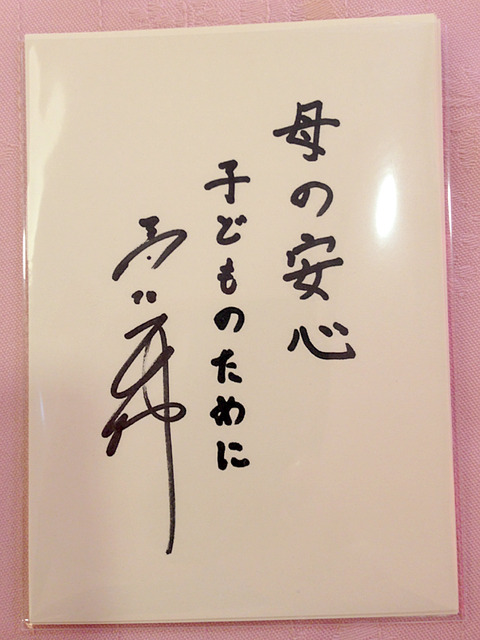 母の安心
子どものために